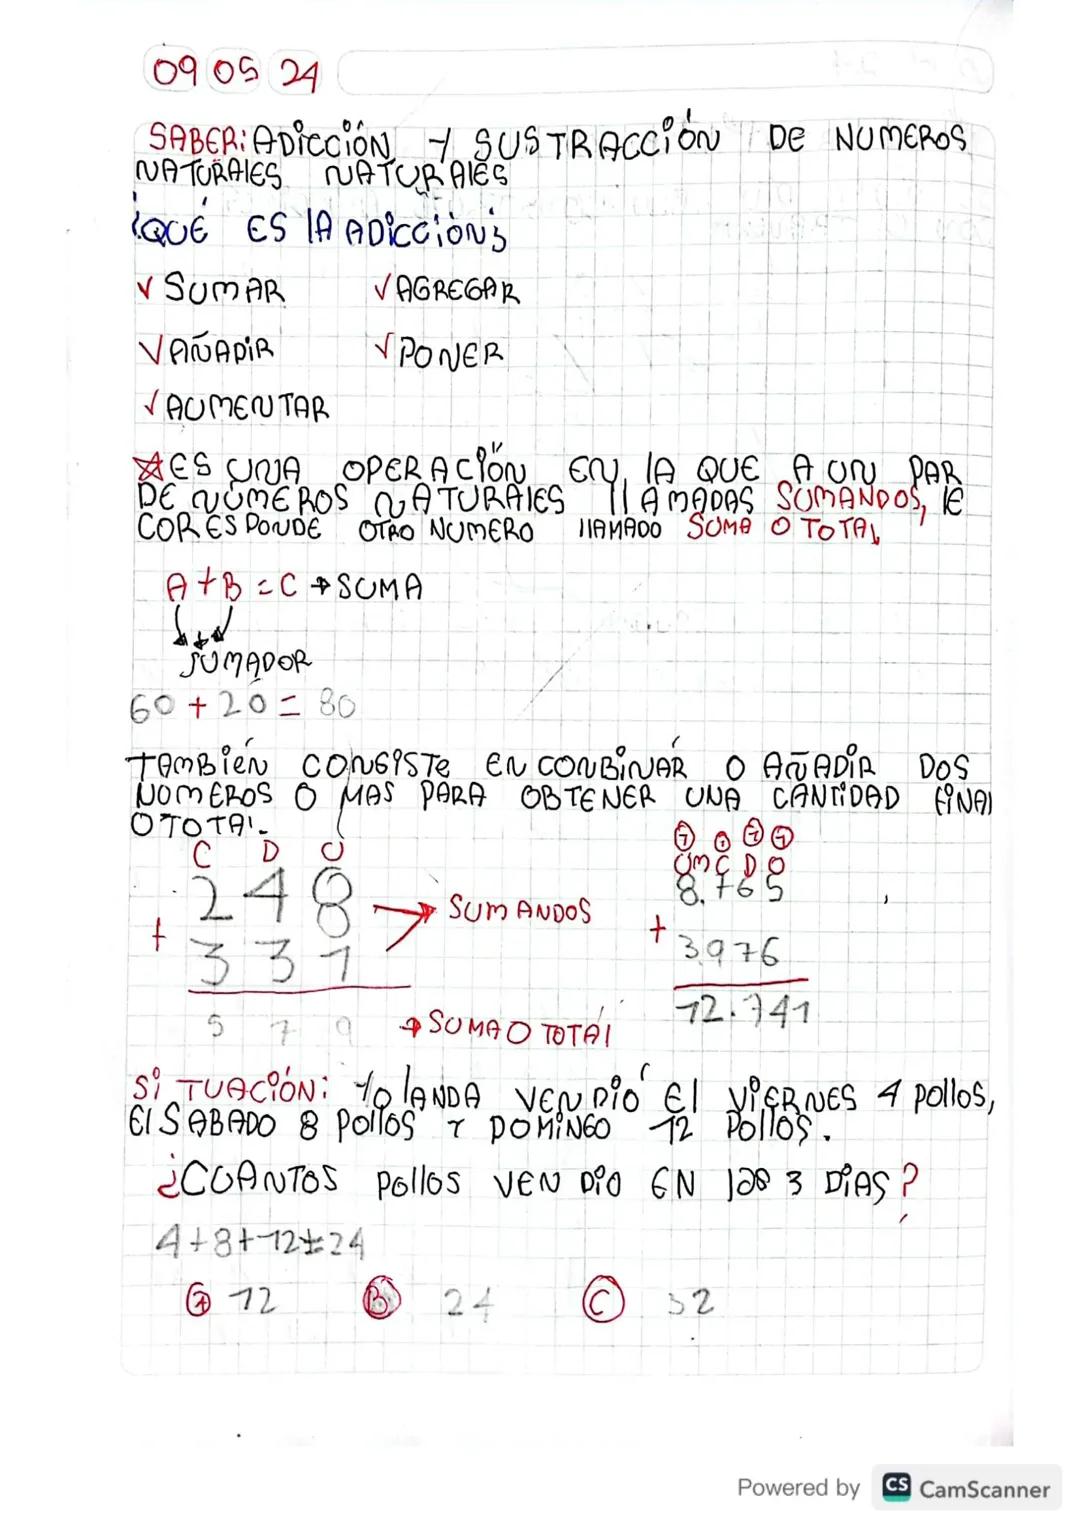 09 05 24
SABER: ADICCIÓN Y SUSTRACCIÓN DE NUMEROS
NATURALES NATURALES
¿QUÉ ES LA ADICCIÓN?
✓ SUMAR ✓ AGREGAR
✓ AÑADIR ✓ PONER
✓ AUMENTAR
☆ ES UNA OPERACIÓN EN LA QUE A UN PAR
DE NÚMEROS NATURALES LLAMADAS SUMANDOS, LE
CORESPONDE OTRO NUMERO LLAMADO SUMA O TOTAL
A + B = C → SUMA
SUMADOR
60 + 20 = 80
TAMBIÉN CONSISTE EN CONBINAR O AÑADIR DOS
NUMEROS O MAS PARA OBTENER UNA CANTIDAD FINAL
O TOTAL.
C D U
248
+ 331 → SUMANDOS
579 → SUMA O TOTAL
1 1 1 1
UM C D U
8.765
+ 3.976
12.741
SITUACIÓN: YOLANDA VENDIÓ EL VIERNES 4 POLLOS,
EL SABADO 8 POLLOS Y DOMINGO 12 POLLOS.
¿CUANTOS POLLOS VENDIO EN LOS 3 DÍAS?
4+8+12=24
A 12 B 24 C 32
Powered by CS CamScanner